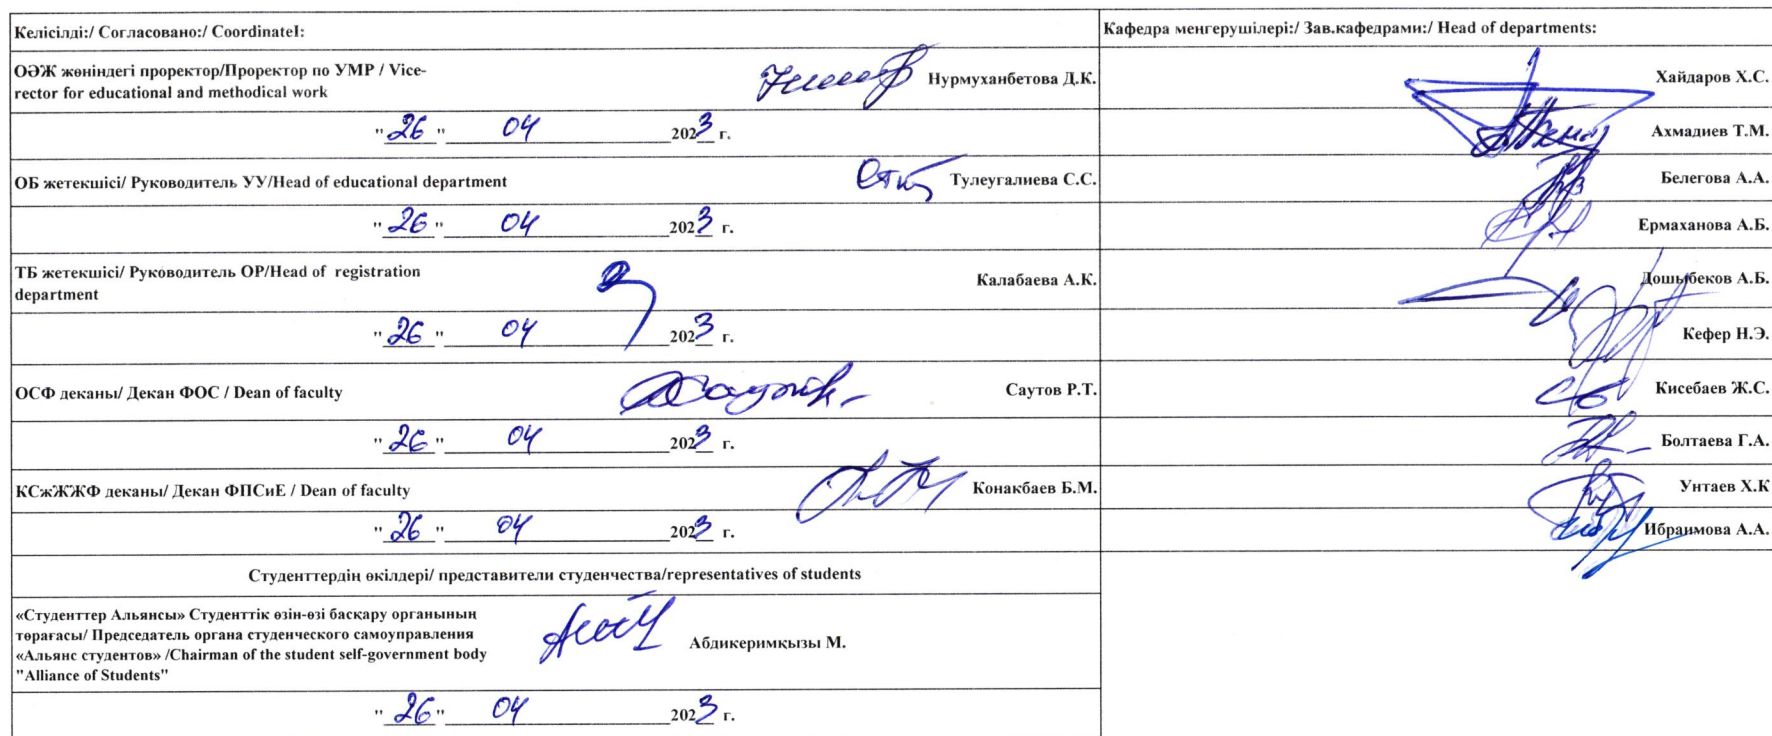 Келісілді:/ Согласовано:/ CoordinateI:
ОӘЖ жөніндегі проректор/Проректор по УМР / Vice-
rector for educational and methodical work
Нурмуханбетова Д.К.
"26" 04 2023 г.
ОБ жетекшісі/ Руководитель УУ/Head of educational department
Тулеугалиева С.С.
"26" 04 2023 г.
ТБ жетекшісі/ Руководитель ОР/Head of registration
department
Калабаева А.К.
"26" 04 2023 г.
ОСФ деканы/ Декан ФОС / Dean of faculty
Саутов Р.Т.
"26" 04 2023 г.
КСжЖЖФ деканы/ Декан ФПСиЕ / Dean of faculty
Конакбаев Б.М.
"26" 04 2023 г.
Студенттердің өкілдері/ представители студенчества/representatives of students
«Студенттер Альянсы» Студенттік өзін-өзі басқару органының
төрағасы/ Председатель органа студенческого самоуправления
«Альянс студентов» /Chairman of the student self-government body
"Alliance of Students"
Абдикеримқызы М.
"26" 04 2023 г.
Кафедра меңгерушілері:/ Зав.кафедрами:/ Head of departments:
Хайдаров Х.С.
Ахмадиев Т.М.
Белегова А.А.
Ермаханова А.Б.
Дошыбеков А.Б.
Кефер Н.Э.
Кисебаев Ж.С.
Болтаева Г.А.
Унтаев Х.К
Ибраимова А.А.